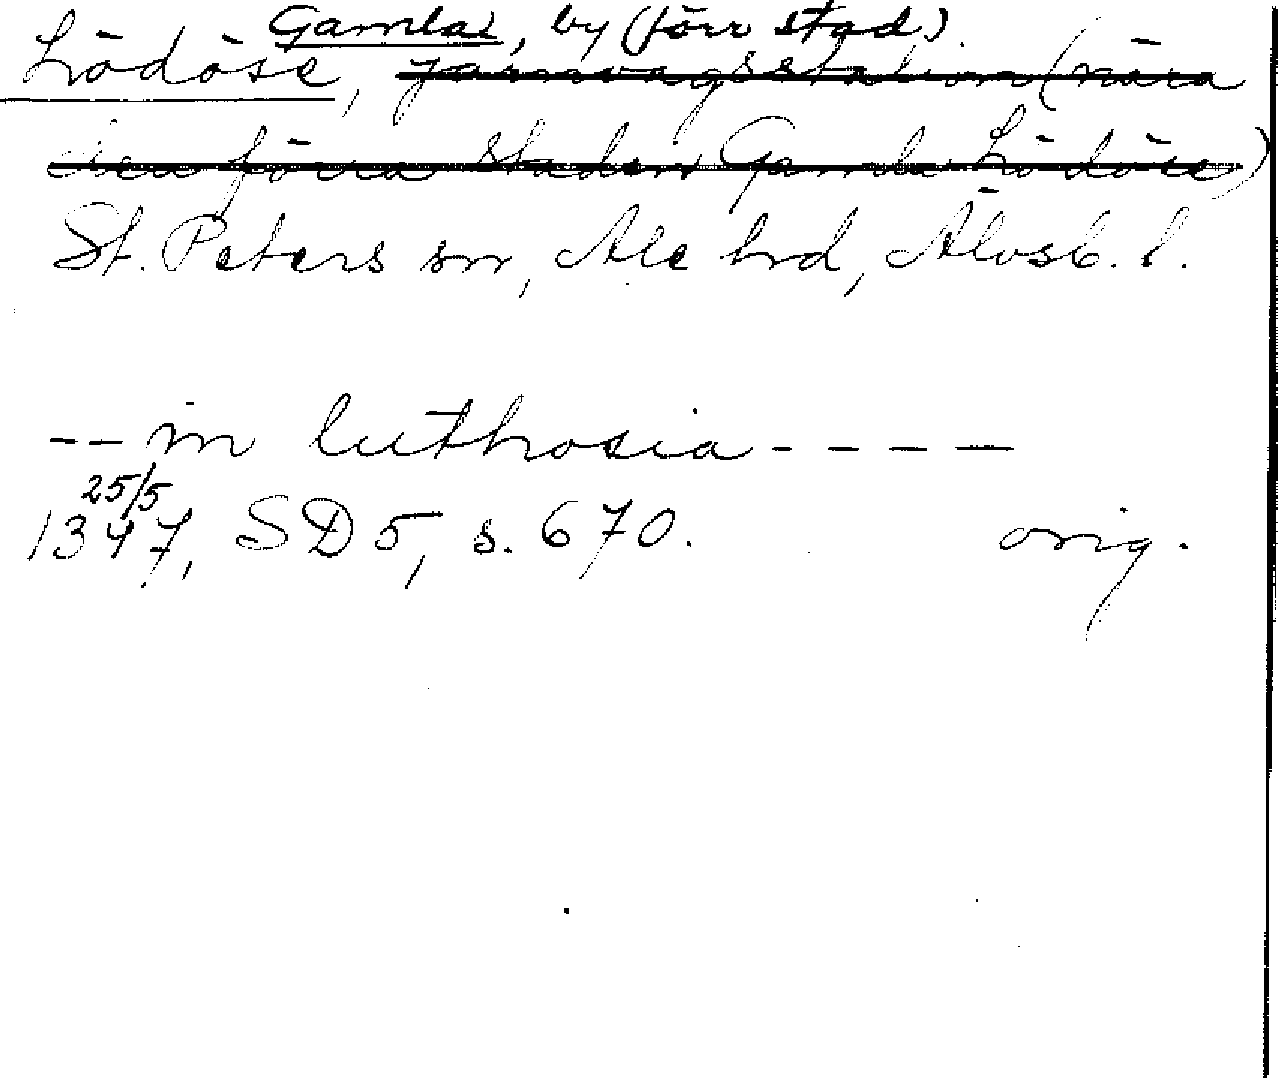 Gamla, by (förr stad).
Lödöse, järnvägsstation (nära
den förra staden Gamla Lödöse)
St. Peters sn, Ale hrd, Älvsb. l.
-- in luthosia ----
25/5
1347, SD 5, s. 670. orig.